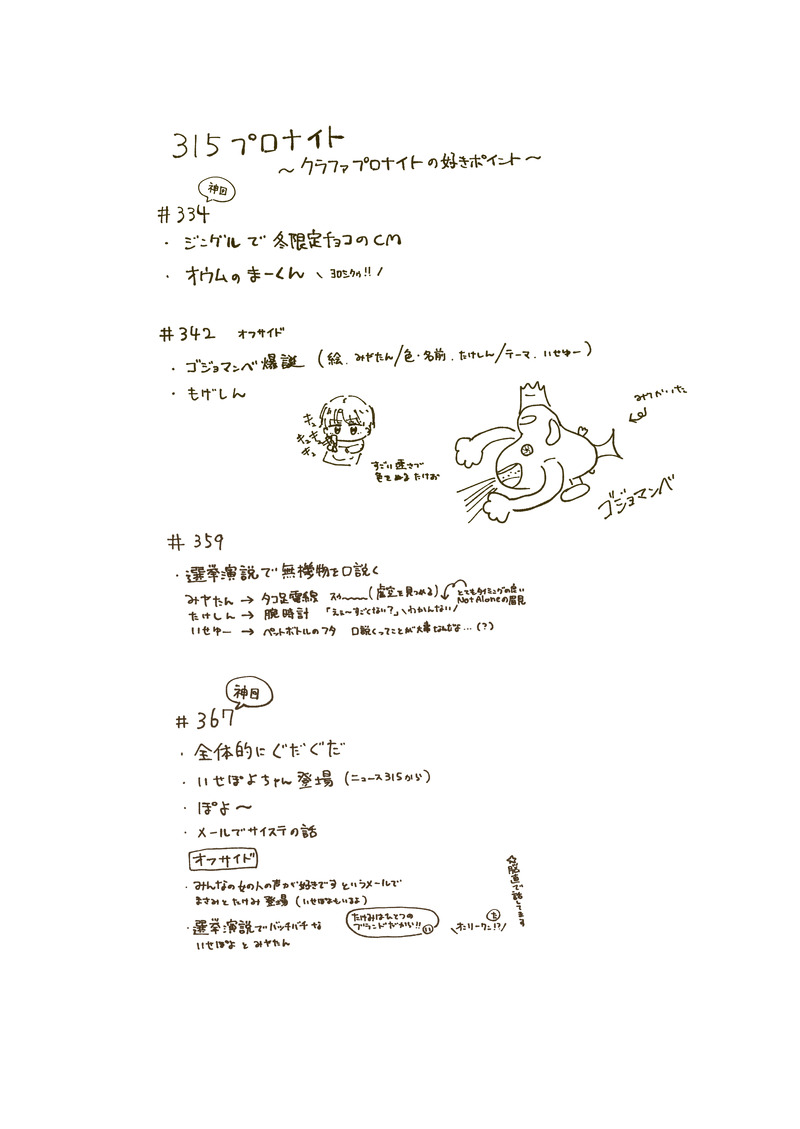 315プロナイト
～クラファプロナイトの好きポイント～
神回
#334
・ジングルで冬限定チョコのCM
・オウムのまーくん \ヨロシクゥ!!/
#342 オフサイド
・ゴジョマンベ爆誕 (絵．みやたん/色・名前．たけしん/テーマ．いせゆー)
・もげしん
キュ
キュキュ
キュ
すごい速さで
色をぬるたけお
みやがいた
ゴジョマンベ
#359
・選挙演説で無機物を口説く
みやたん→タコ足電線 スゥ〜〜〜(虚空を見つめる) とてもタイミングの良い
Not Aloneの眉見
たけしん→腕時計 「えぇ〜すごくない?」\わかんない/
いせゆー→ペットボトルのフタ 口説くってことが大事なんだな…(?)
神回
#367
・全体的にぐだぐだ
・いせぽよちゃん登場(ニュース315から)
・ぽよ〜
・メールでサイステの話
オフサイド
・みんなの女の人の声が好きですというメールで
まさみとたけみ登場(いせぽよもいるよ)
・選挙演説でバッチバチな
いせぽよとみやたん
たけみはひとつの
ブランドだから!! い
た
\たリークン!?/
☆脳直で話してます